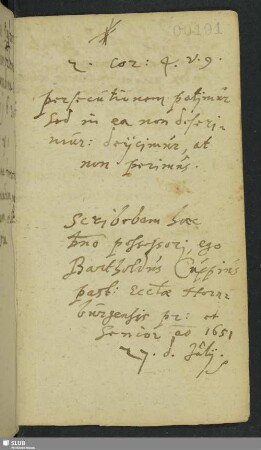 2. Cor: 4. v. 9.
persecutionem patimur
sed in ea non deseri-
mur: deijcimur, at
non perimus.
Scribebam haec
possessori, ego
Bartholdus
past: Eccliae Horne
burgensis pr: et
Senior ao 1651
27. d. Julij.
SLUB